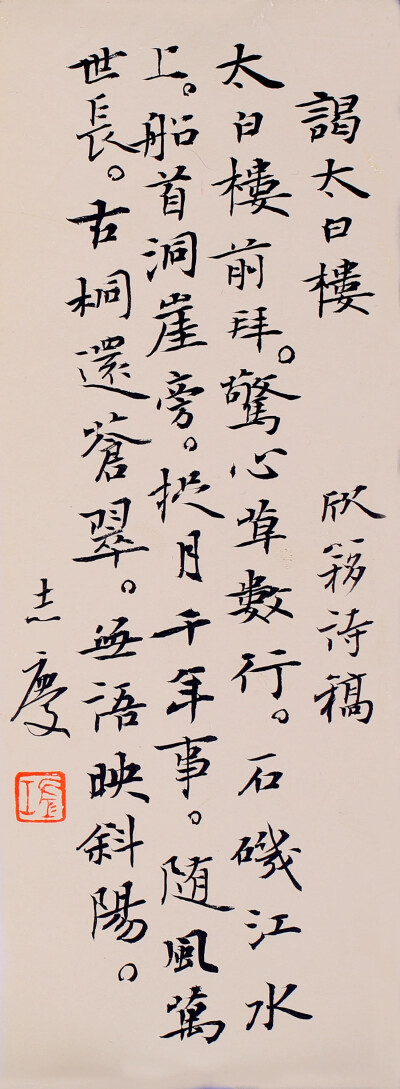 謁太白樓
欣簃詩稿
太白樓前拜。驚心草數行。石磯江水
上。船首洞崖旁。捉月千年事。随風萬
世長。古桐還蒼翠。無語映斜陽。
志慶